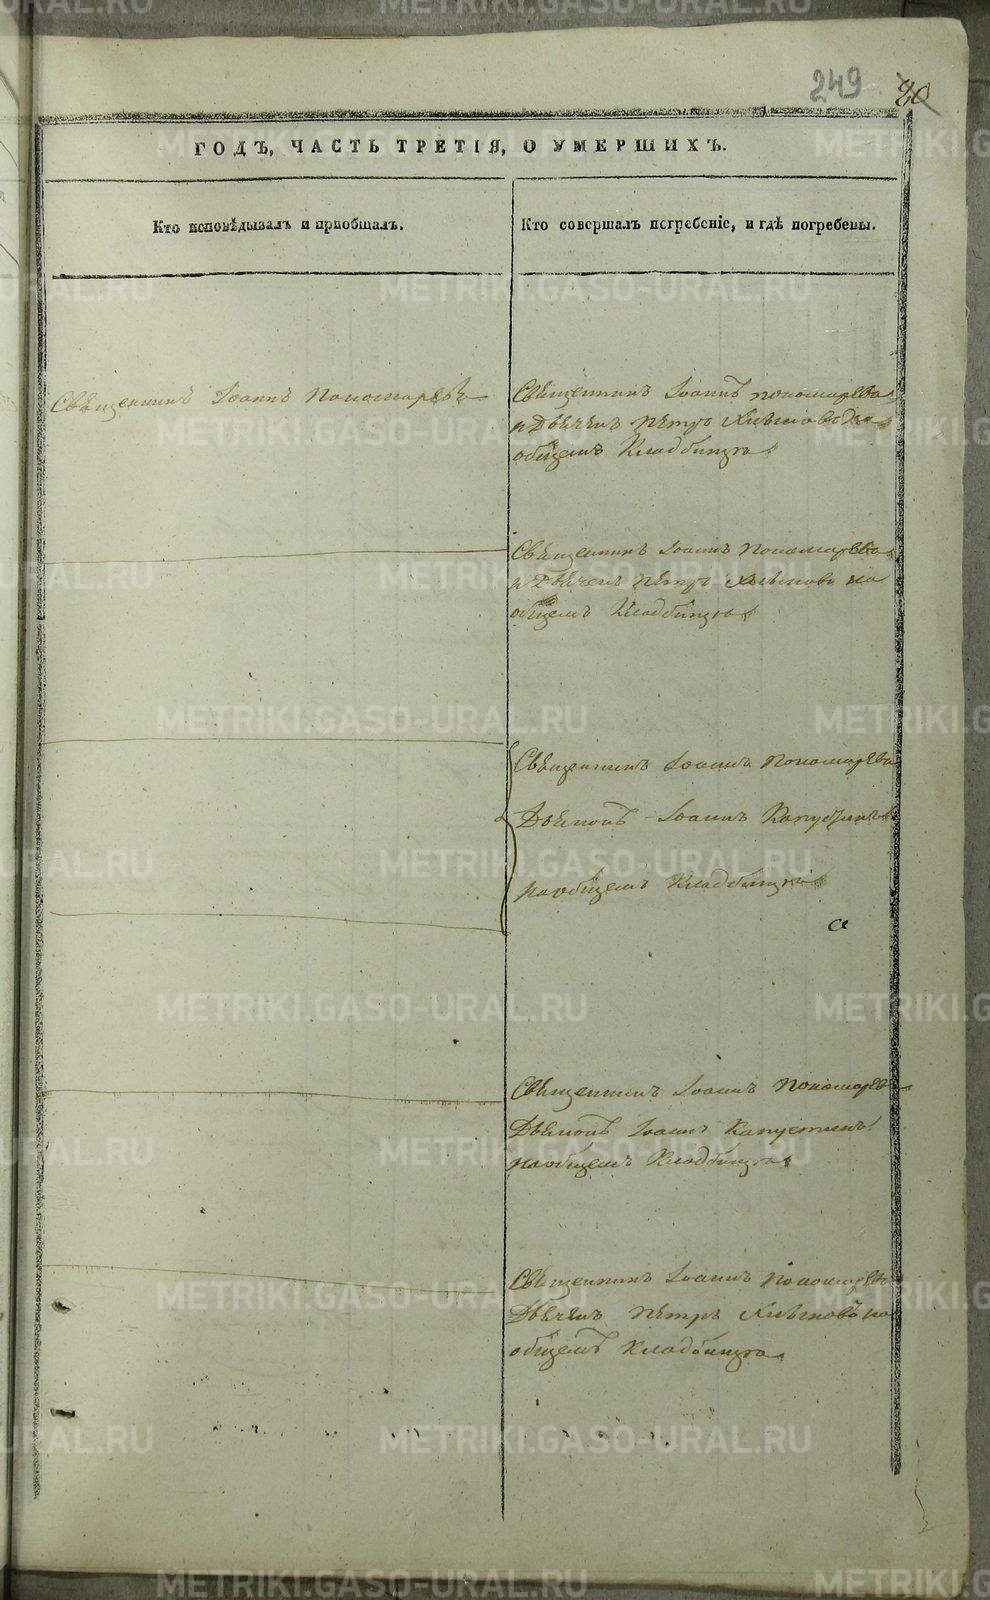 249
80
ГОДЪ, ЧАСТЬ ТРЕТІЯ, О УМЕРШИХЪ.
Кто исповѣдывалъ и приобщалъ.
Кто совершалъ погребеніе, и гдѣ погребены.
Священникъ Іоаннъ Пономаревъ
Священникъ Іоаннъ пономаревъ
и Дьячекъ Петръ на
общемъ Кладбищѣ
Священникъ Іоаннъ Пономаревъ
и Дьячекъ Петръ на
общемъ Кладбищѣ
Священникъ Іоаннъ Пономаревъ
Дьяконъ Іоаннъ Капустинъ
на общемъ Кладбищѣ
Священникъ Іоаннъ Пономаревъ
Дьяконъ Іоаннъ Капустинъ
на общемъ Кладбищѣ
Священникъ Іоаннъ Пономаревъ
Дьячекъ Петръ на
общемъ Кладбищѣ
METRIKI.GASO-URAL.RU